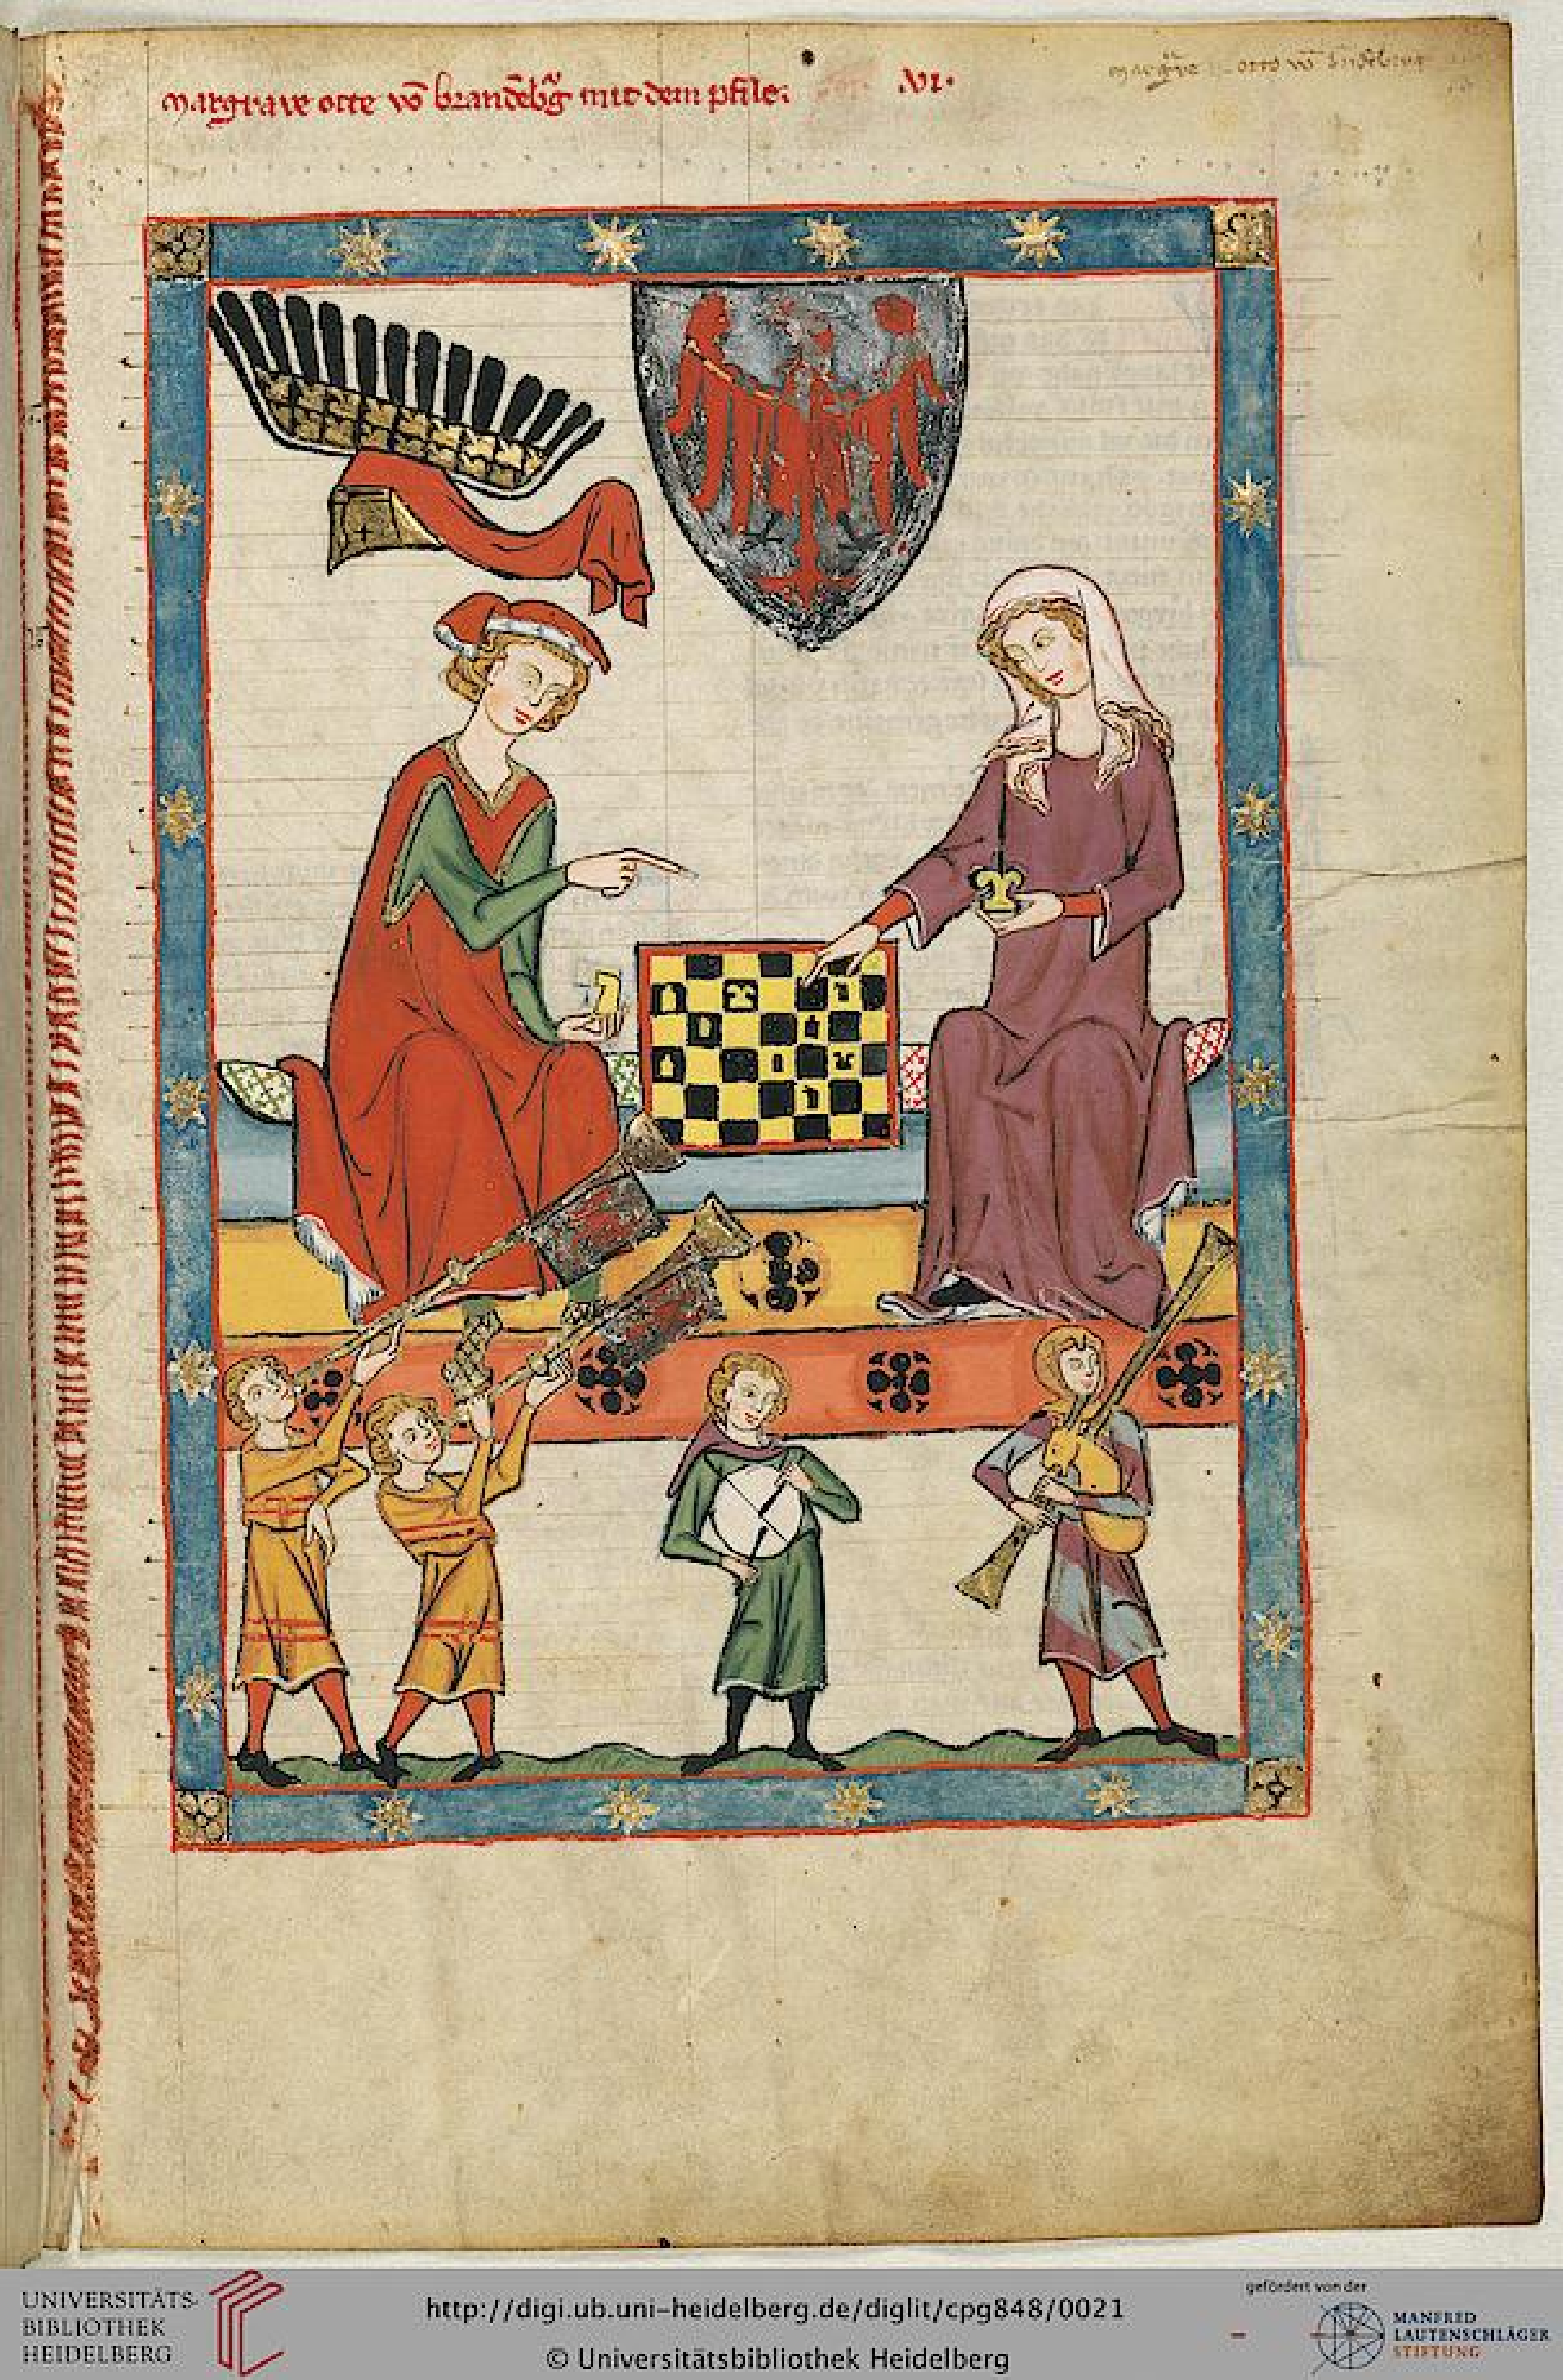 Margrave otte vō brandēbg mit dem pfile:
.VI.
UNIVERSITÄTS-
BIBLIOTHEK
HEIDELBERG
http://digi.ub.uni-heidelberg.de/diglit/cpg848/0021
© Universitätsbibliothek Heidelberg
gefördert von der
MANFRED
LAUTENSCHLÄGER
STIFTUNG